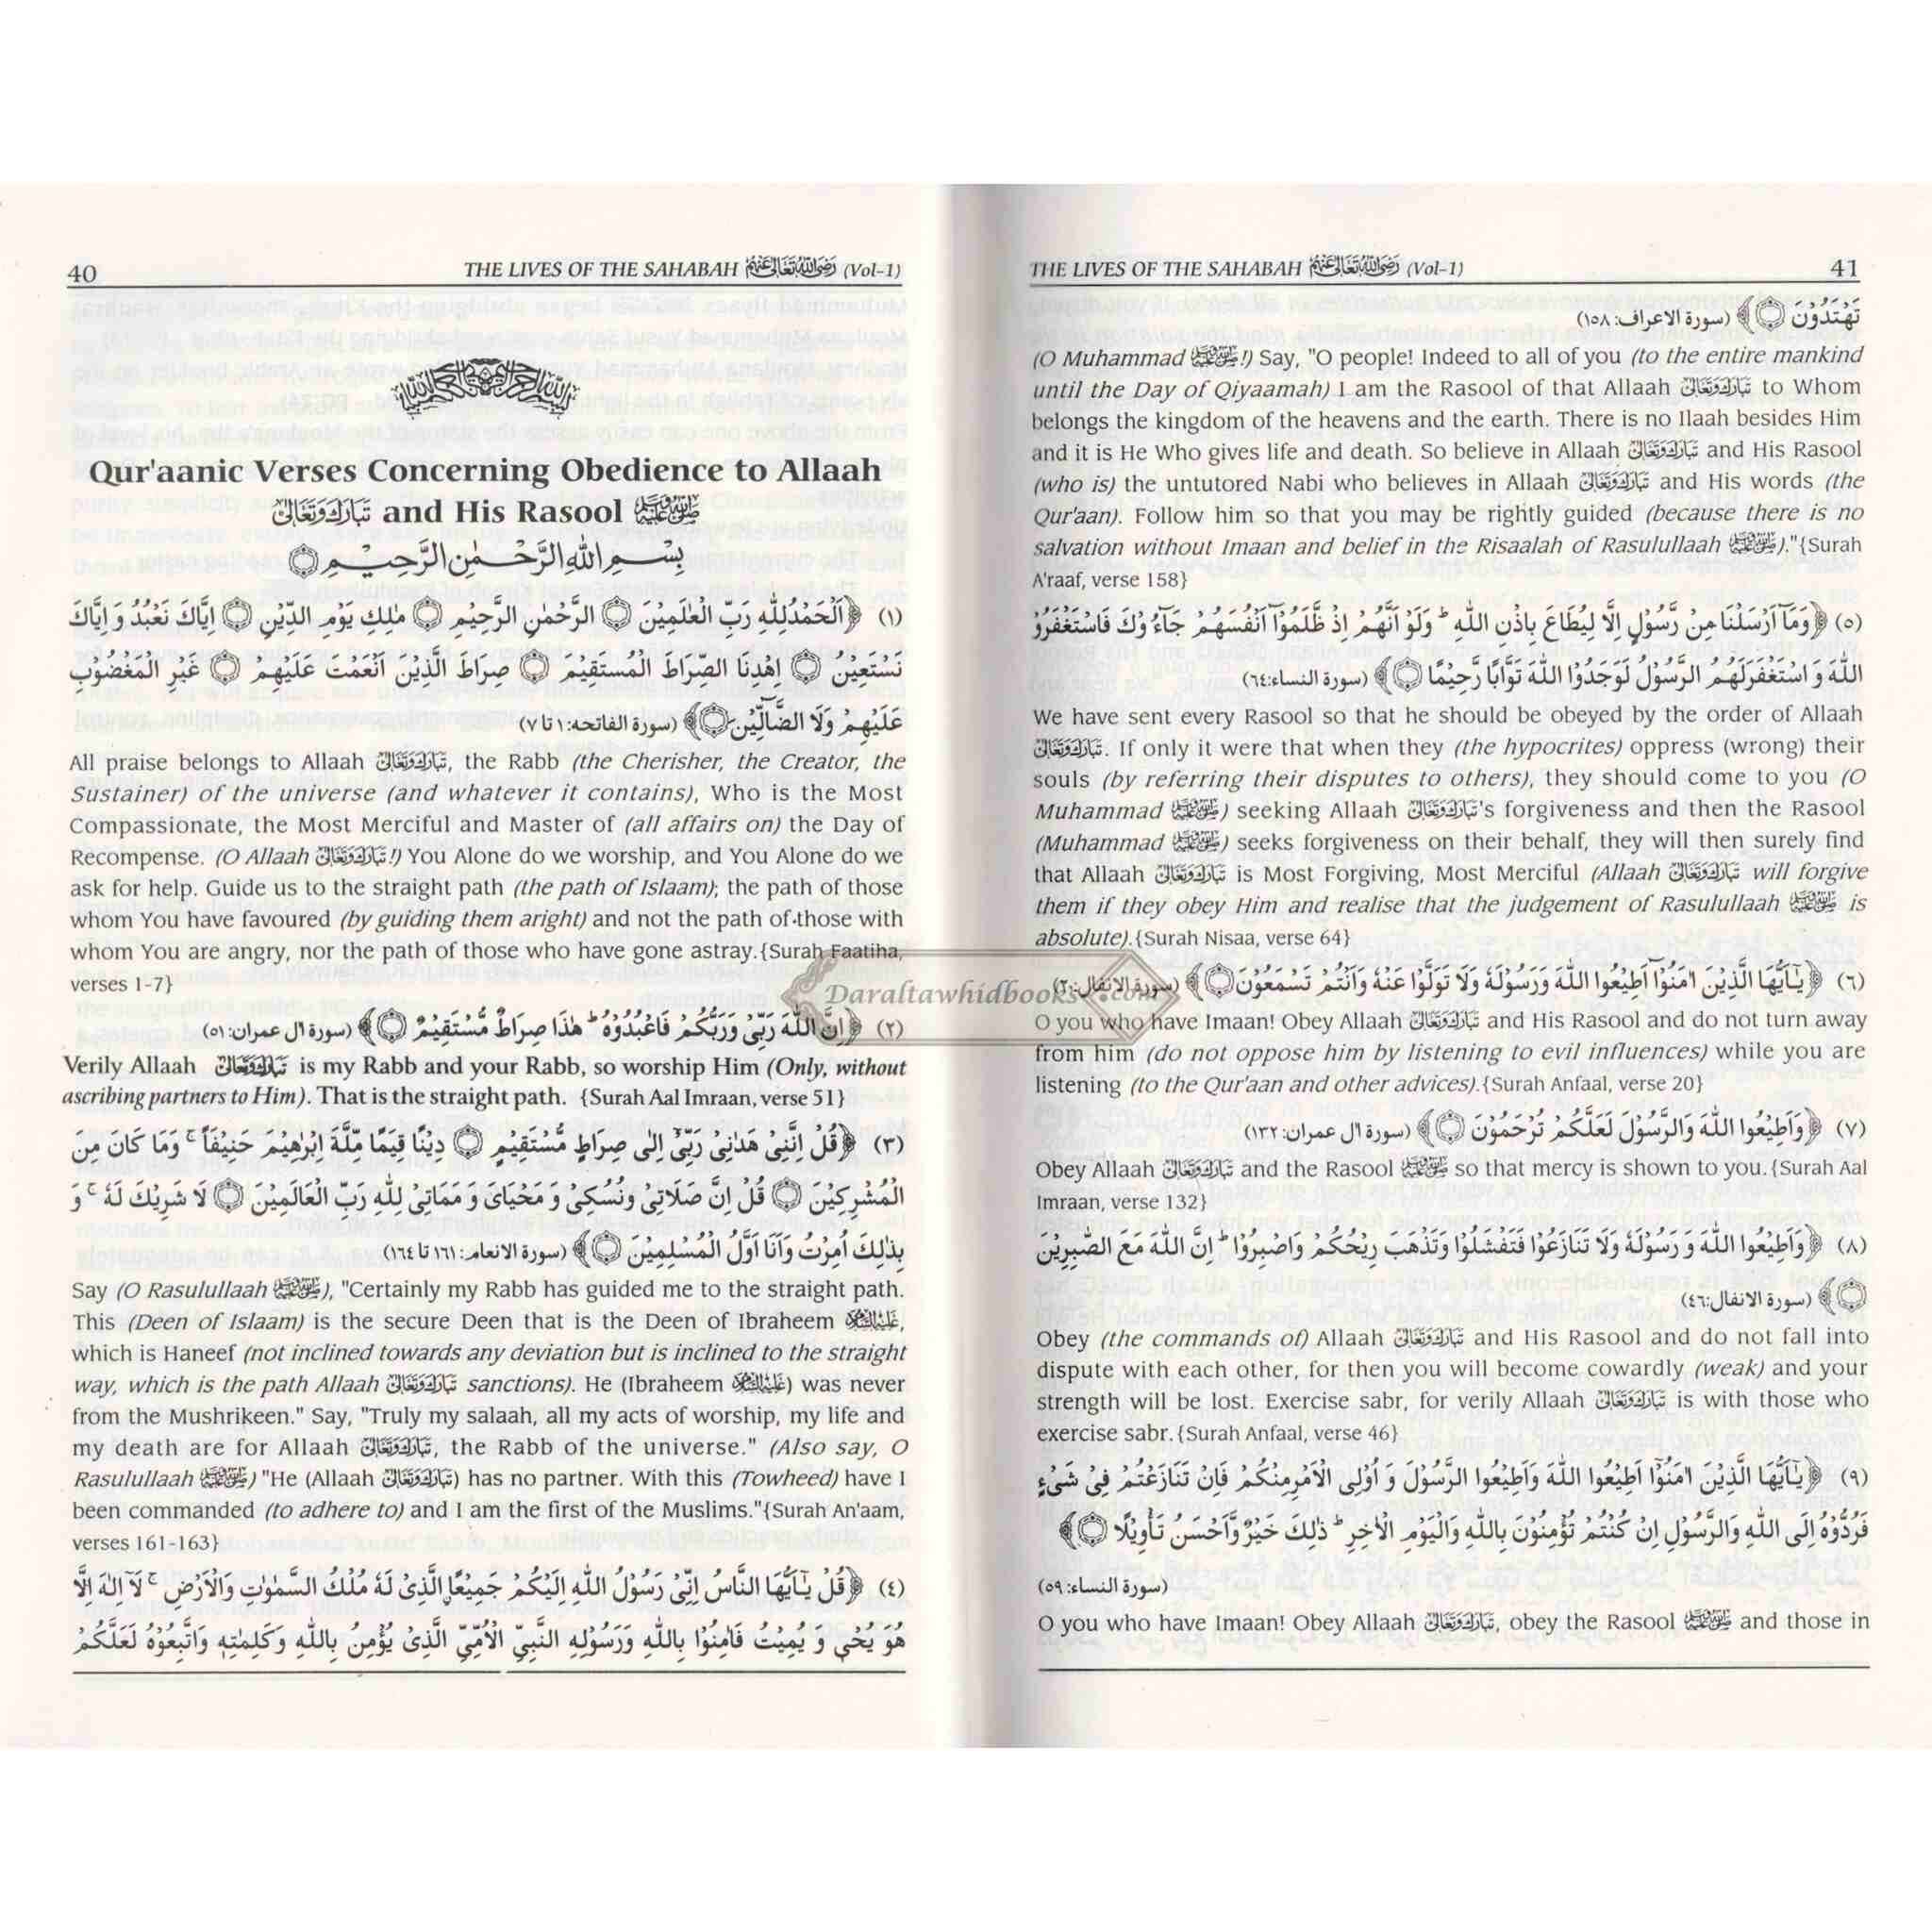 40
THE LIVES OF THE SAHABAH رضي الله تعالى عنهم (Vol-1)
Qur'aanic Verses Concerning Obedience to Allaah
تبارك وتعالى and His Rasool ﷺ
بِسْمِ اللّٰهِ الرَّحْمٰنِ الرَّحِيْمِ
(١) ﴿اَلْحَمْدُلِلّٰهِ رَبِّ الْعٰلَمِيْنَ ۝ الرَّحْمٰنِ الرَّحِيْمِ ۝ مٰلِكِ يَوْمِ الدِّيْنِ ۝ اِيَّاكَ نَعْبُدُ وَ اِيَّاكَ
نَسْتَعِيْنُ ۝ اِهْدِنَا الصِّرَاطَ الْمُسْتَقِيْمَ ۝ صِرَاطَ الَّذِيْنَ اَنْعَمْتَ عَلَيْهِمْ ۝ غَيْرِ الْمَغْضُوْبِ
عَلَيْهِمْ وَلَا الضَّآلِّيْنَ ۝﴾ (سورة الفاتحه: ١ تا ٧)
All praise belongs to Allaah تبارك وتعالى, the Rabb (the Cherisher, the Creator, the
Sustainer) of the universe (and whatever it contains), Who is the Most
Compassionate, the Most Merciful and Master of (all affairs on) the Day of
Recompense. (O Allaah تبارك وتعالى!) You Alone do we worship, and You Alone do we
ask for help. Guide us to the straight path (the path of Islaam); the path of those
whom You have favoured (by guiding them aright) and not the path of those with
whom You are angry, nor the path of those who have gone astray.{Surah Faatiha,
verses 1-7}
(٢) ﴿اِنَّ اللّٰهَ رَبِّىْ وَرَبُّكُمْ فَاعْبُدُوْهُ ؕ هٰذَا صِرَاطٌ مُّسْتَقِيْمٌ ۝﴾ (سورة اٰل عمران: ٥١)
Verily Allaah تبارك وتعالى is my Rabb and your Rabb, so worship Him (Only, without
ascribing partners to Him). That is the straight path. {Surah Aal Imraan, verse 51}
(٣) ﴿قُلْ اِنَّنِىْ هَدٰنِىْ رَبِّىْٓ اِلٰى صِرَاطٍ مُّسْتَقِيْمٍ ۝ دِيْنًا قِيَمًا مِّلَّةَ اِبْرٰهِيْمَ حَنِيْفًا ۚ وَمَا كَانَ مِنَ
الْمُشْرِكِيْنَ ۝ قُلْ اِنَّ صَلَاتِىْ وَنُسُكِىْ وَ مَحْيَاىَ وَ مَمَاتِىْ لِلّٰهِ رَبِّ الْعَالَمِيْنَ ۝ لَا شَرِيْكَ لَهٗ ۚ وَ
بِذٰلِكَ اُمِرْتُ وَاَنَا اَوَّلُ الْمُسْلِمِيْنَ ۝﴾ (سورة الانعام: ١٦١ تا ١٦٤)
Say (O Rasulullaah ﷺ), "Certainly my Rabb has guided me to the straight path.
This (Deen of Islaam) is the secure Deen that is the Deen of Ibraheem عليه السلام,
which is Haneef (not inclined towards any deviation but is inclined to the straight
way, which is the path Allaah تبارك وتعالى sanctions). He (Ibraheem عليه السلام) was never
from the Mushrikeen." Say, "Truly my salaah, all my acts of worship, my life and
my death are for Allaah تبارك وتعالى, the Rabb of the universe." (Also say, O
Rasulullaah ﷺ) "He (Allaah تبارك وتعالى) has no partner. With this (Towheed) have I
been commanded (to adhere to) and I am the first of the Muslims."{Surah An'aam,
verses 161-163}
(٤) ﴿قُلْ يٰٓاَيُّهَا النَّاسُ اِنِّىْ رَسُوْلُ اللّٰهِ اِلَيْكُمْ جَمِيْعًا الَّذِىْ لَهٗ مُلْكُ السَّمٰوٰتِ وَالْاَرْضِ ۚ لَآ اِلٰهَ اِلَّا
هُوَ يُحْىٖ وَ يُمِيْتُ فَاٰمِنُوْا بِاللّٰهِ وَرَسُوْلِهِ النَّبِىِّ الْاُمِّىِّ الَّذِىْ يُؤْمِنُ بِاللّٰهِ وَكَلِمٰتِهٖ وَاتَّبِعُوْهُ لَعَلَّكُمْ
THE LIVES OF THE SAHABAH رضي الله تعالى عنهم (Vol-1)
41
تَهْتَدُوْنَ ۝﴾ (سورة الاعراف: ١٥٨)
(O Muhammad ﷺ!) Say, "O people! Indeed to all of you (to the entire mankind
until the Day of Qiyaamah) I am the Rasool of that Allaah تبارك وتعالى to Whom
belongs the kingdom of the heavens and the earth. There is no Ilaah besides Him
and it is He Who gives life and death. So believe in Allaah تبارك وتعالى and His Rasool
(who is) the untutored Nabi who believes in Allaah تبارك وتعالى and His words (the
Qur'aan). Follow him so that you may be rightly guided (because there is no
salvation without Imaan and belief in the Risaalah of Rasulullaah ﷺ)."{Surah
A'raaf, verse 158}
(٥) ﴿وَمَآ اَرْسَلْنَا مِنْ رَّسُوْلٍ اِلَّا لِيُطَاعَ بِاِذْنِ اللّٰهِ ؕ وَلَوْ اَنَّهُمْ اِذْ ظَّلَمُوْٓا اَنْفُسَهُمْ جَآءُوْكَ فَاسْتَغْفَرُوْ
اللّٰهَ وَ اسْتَغْفَرَلَهُمُ الرَّسُوْلُ لَوَجَدُوا اللّٰهَ تَوَّابًا رَّحِيْمًا ۝﴾ (سورة النساء: ٦٤)
We have sent every Rasool so that he should be obeyed by the order of Allaah
تبارك وتعالى. If only it were that when they (the hypocrites) oppress (wrong) their
souls (by referring their disputes to others), they should come to you (O
Muhammad ﷺ) seeking Allaah تبارك وتعالى's forgiveness and then the Rasool
(Muhammad ﷺ) seeks forgiveness on their behalf, they will then surely find
that Allaah تبارك وتعالى is Most Forgiving, Most Merciful (Allaah تبارك وتعالى will forgive
them if they obey Him and realise that the judgement of Rasulullaah ﷺ is
absolute).{Surah Nisaa, verse 64}
(٦) ﴿يٰٓاَيُّهَا الَّذِيْنَ اٰمَنُوْٓا اَطِيْعُوا اللّٰهَ وَرَسُوْلَهٗ وَلَا تَوَلَّوْا عَنْهُ وَاَنْتُمْ تَسْمَعُوْنَ ۝﴾ (سورة الانفال: ٢٠)
Daraltawhidbooks.com
O you who have Imaan! Obey Allaah تبارك وتعالى and His Rasool and do not turn away
from him (do not oppose him by listening to evil influences) while you are
listening (to the Qur'aan and other advices).{Surah Anfaal, verse 20}
(٧) ﴿وَاَطِيْعُوا اللّٰهَ وَالرَّسُوْلَ لَعَلَّكُمْ تُرْحَمُوْنَ ۝﴾ (سورة اٰل عمران: ١٣٢)
Obey Allaah تبارك وتعالى and the Rasool ﷺ so that mercy is shown to you.{Surah Aal
Imraan, verse 132}
(٨) ﴿وَاَطِيْعُوا اللّٰهَ وَ رَسُوْلَهٗ وَلَا تَنَازَعُوْا فَتَفْشَلُوْا وَتَذْهَبَ رِيْحُكُمْ وَاصْبِرُوْا ؕ اِنَّ اللّٰهَ مَعَ الصّٰبِرِيْنَ
۝﴾ (سورة الانفال: ٤٦)
Obey (the commands of) Allaah تبارك وتعالى and His Rasool and do not fall into
dispute with each other, for then you will become cowardly (weak) and your
strength will be lost. Exercise sabr, for verily Allaah تبارك وتعالى is with those who
exercise sabr.{Surah Anfaal, verse 46}
(٩) ﴿يٰٓاَيُّهَا الَّذِيْنَ اٰمَنُوْٓا اَطِيْعُوا اللّٰهَ وَاَطِيْعُوا الرَّسُوْلَ وَ اُوْلِى الْاَمْرِمِنْكُمْ فَاِنْ تَنَازَعْتُمْ فِىْ شَىْءٍ
فَرُدُّوْهُ اِلَى اللّٰهِ وَالرَّسُوْلِ اِنْ كُنْتُمْ تُؤْمِنُوْنَ بِاللّٰهِ وَالْيَوْمِ الْاٰخِرِ ؕ ذٰلِكَ خَيْرٌ وَّاَحْسَنُ تَاْوِيْلًا ۝﴾
(سورة النساء: ٥٩)
O you who have Imaan! Obey Allaah تبارك وتعالى, obey the Rasool ﷺ and those in